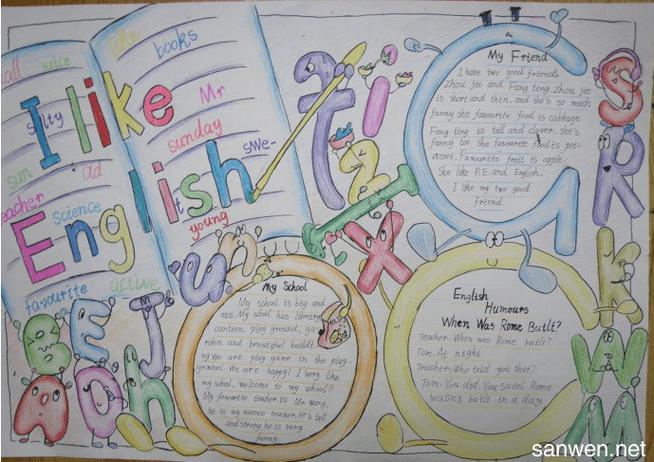 all juice
like
books
I like
salty
Mr
sunday
sun
ad
swe-
teacher
English
science
it
young
favourite
active
My Friend
I have two good friends
Zhou Jie and Fang ting Zhou Jie
is short and thin. and she's so much
funny she favourite food is cabbage
Fang ting is tall and clever. she's
funny too. she favourite food is pot-
atoes. Favourite fruit is apple
She like P.E. and English.
I like my two good
friend.
S
R
K
W
M
t
i
z
I
X
G
u
n
B
E
J
A
a
h
My School
My school is big and
nice. My schol has library
canteen. play ground, ga-
rden and beautiful buildi
ng We are play game in the play-
ground. we are happy! I very like
my school, welcome to my school!!
My favourite teacher is Mr wang
he is my science teacher. He's tall
and strong, he is very
funny
English
Humours
When Was Rome Built?
Teacher: When was Rome built?
Tom: At night
Teacher: Who told you that?
Tom: You did. You said Rome
wasn't built in a day
sanwen.net